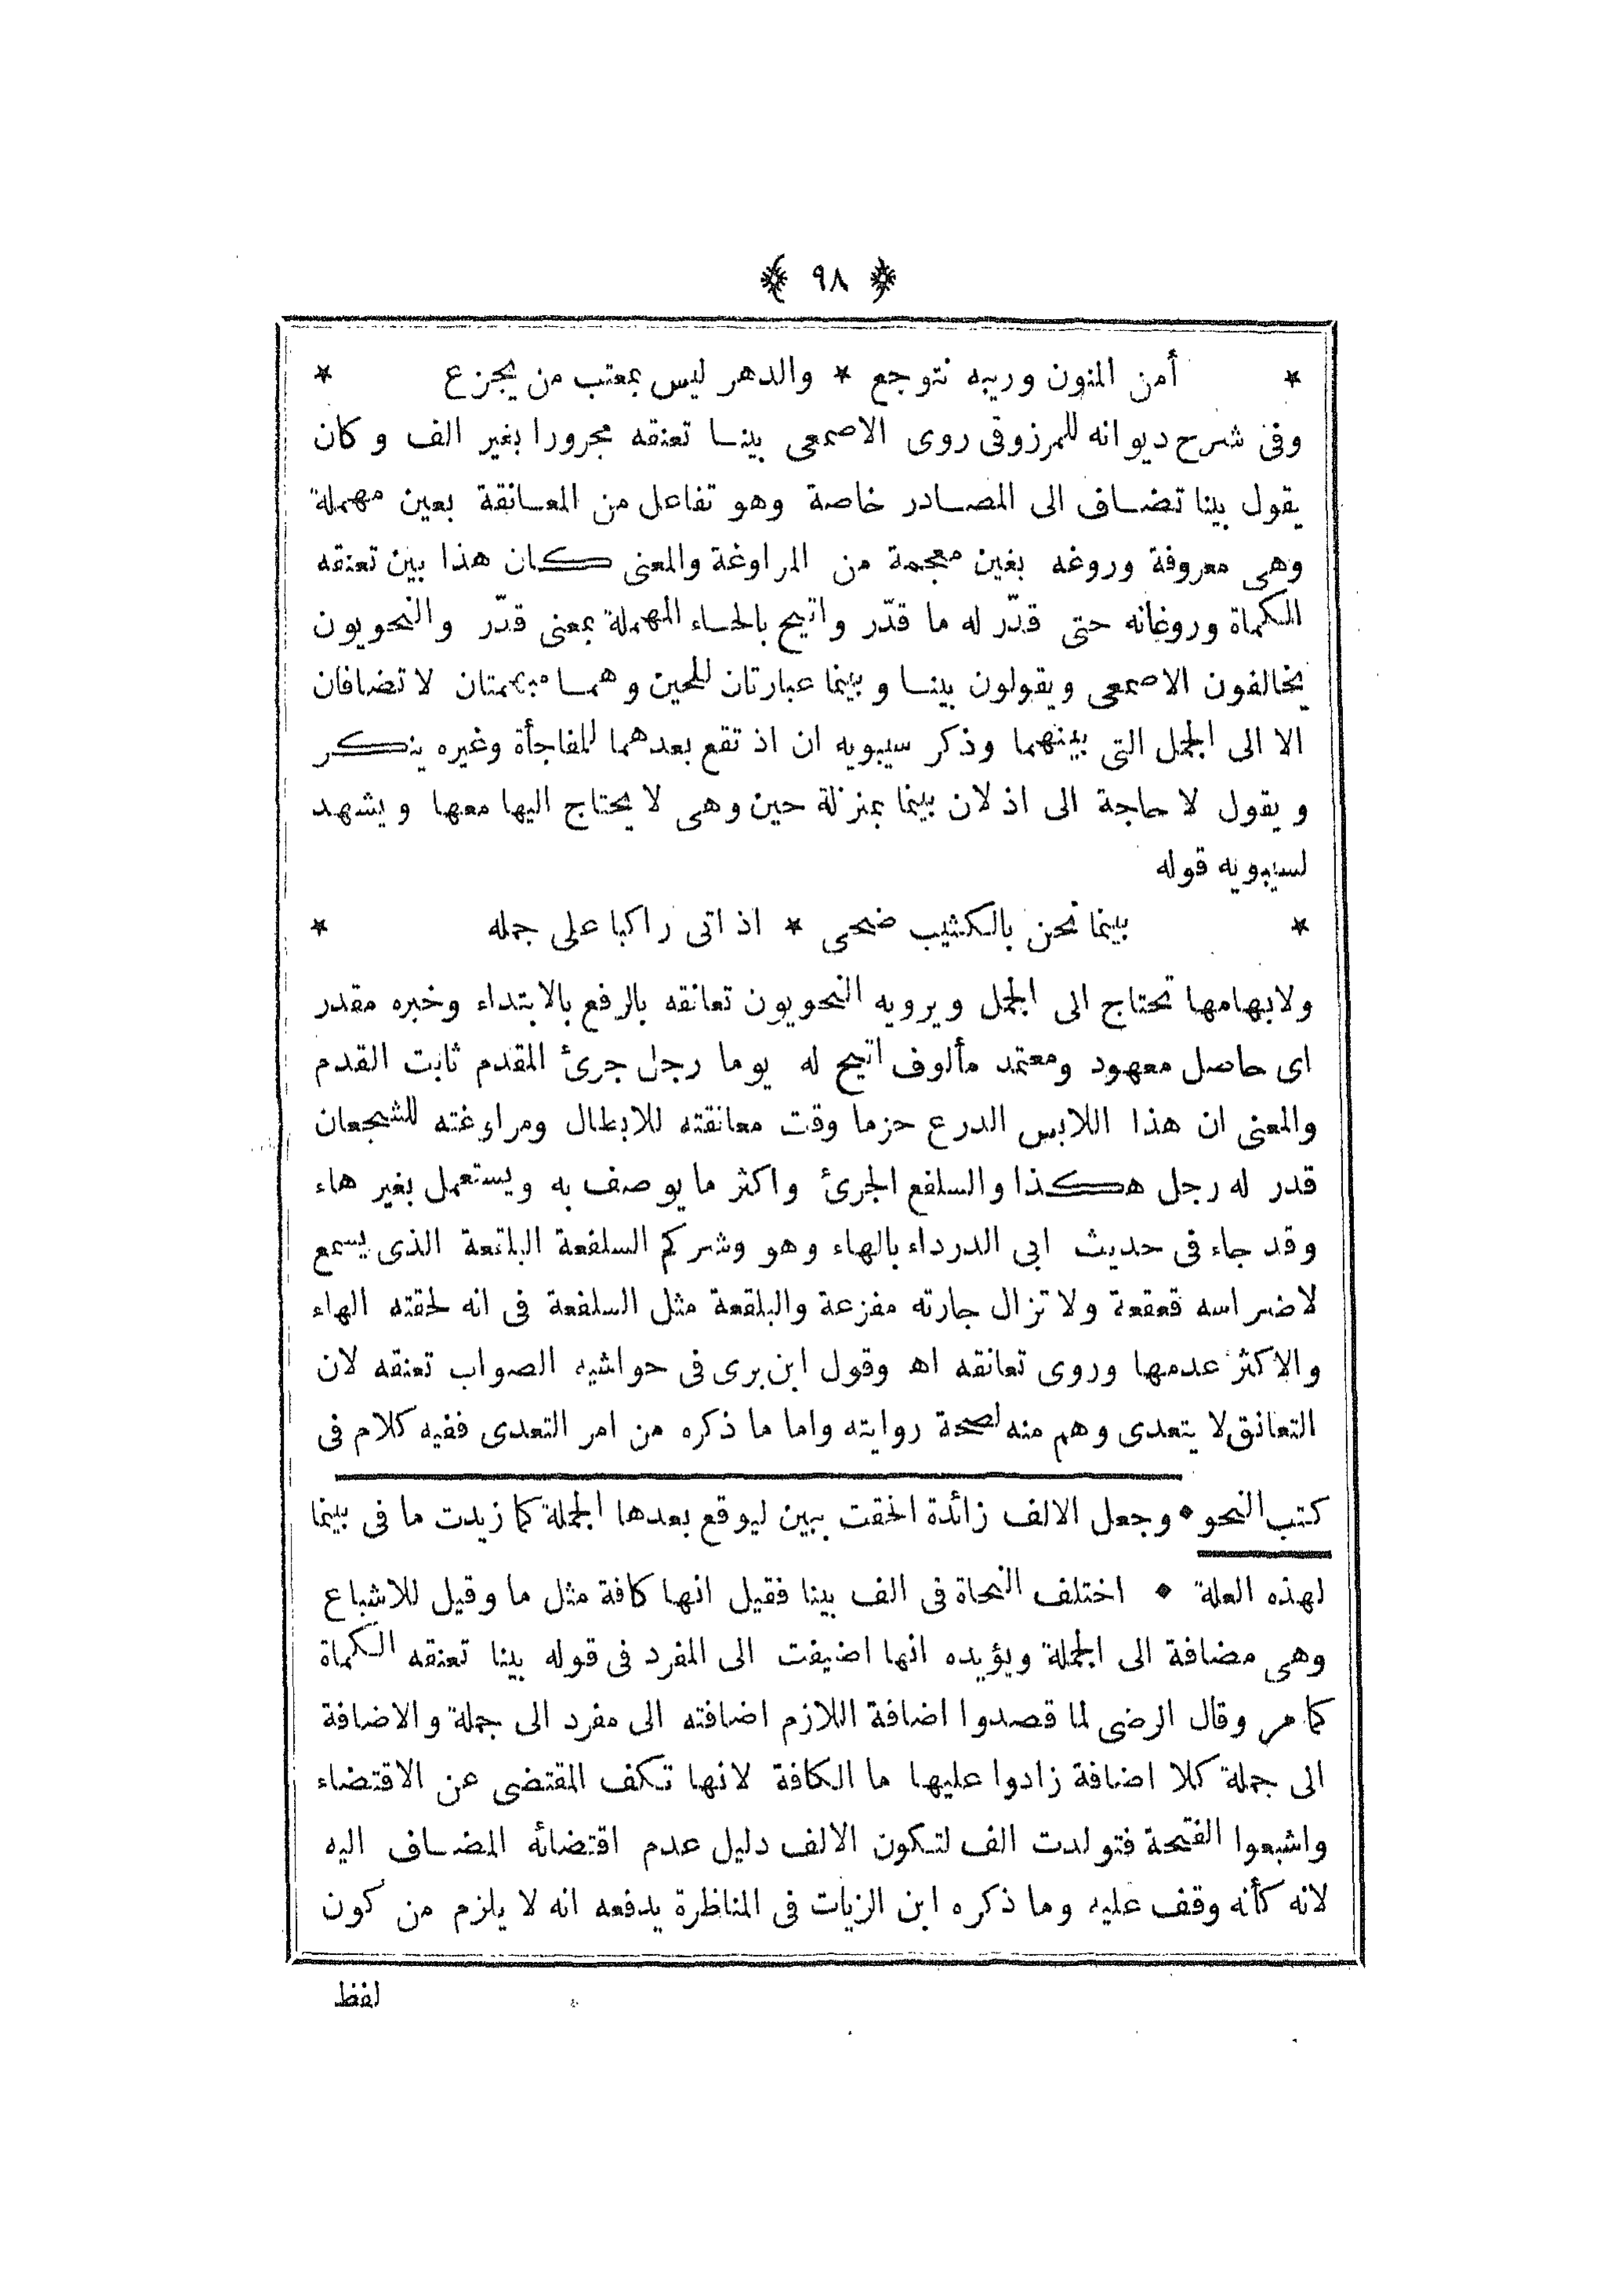 ﴿ ٩٨ ﴾
* أمن المنون وريبه تتوجع * والدهر ليس بمعتب من يجزع *
وفى شرح ديوانه للمرزوقى روى الاصمعى بينا تعنقه مجرورا بغير الف وكان
يقول بينا تضاف الى المصادر خاصة وهو تفاعل من المعانقة بعين مهملة
وهى معروفة وروغه بغين معجمة من المراوغة والمعنى كان هذا بين تعنقه
الكماة وروغانه حتى قدّر له ما قدّر واتيح بالحاء المهملة بمعنى قدّر والنحويون
يخالفون الاصمعى ويقولون بينا وبينما عبارتان للحين وهما مبهمتان لا تضافان
الا الى الجمل التى بينهما وذكر سيبويه ان اذ تقع بعدهما للمفاجأة وغيره ينكر
ويقول لا حاجة الى اذ لان بينما بمنزلة حين وهى لا يحتاج اليها معها ويشهد
لسيبويه قوله
* بينما نحن بالكثيب ضحى * اذ اتى راكبا على جمله *
ولابهامها تحتاج الى الجمل ويرويه النحويون تعانقه بالرفع بالابتداء وخبره مقدر
اى حاصل معهود ومعتمد مألوف اتيح له يوما رجل جرئ المقدم ثابت القدم
والمعنى ان هذا اللابس الدرع حزما وقت معانقته للابطال ومراوغته للشجعان
قدر له رجل هكذا والسلفع الجرئ واكثر ما يوصف به ويستعمل بغير هاء
وقد جاء فى حديث ابى الدرداء بالهاء وهو وشركم السلفعة البلقعة الذى يسمع
لاضراسه قعقعة ولا تزال جارته مفزعة والبلقعة مثل السلفعة فى انه لحقته الهاء
والاكثر عدمها وروى تعانقه اهـ وقول ابن برى فى حواشيه الصواب تعنقه لان
التعانق لا يتعدى وهم منه لصحة روايته واما ما ذكره من امر التعدى ففيه كلام فى
كتب النحو • وجعل الالف زائدة الحقت ببين ليوقع بعدها الجملة كما زيدت ما فى بينما
لهذه العلة • اختلف النحاة فى الف بينا فقيل انها كافة مثل ما وقيل للاشباع
وهى مضافة الى الجملة ويؤيده انها اضيفت الى المفرد فى قوله بينا تعنقه الكماة
كما مر وقال الرضى لما قصدوا اضافة اللازم اضافته الى مفرد الى جملة والاضافة
الى جملة كلا اضافة زادوا عليها ما الكافة لانها تكف المقتضى عن الاقتضاء
واشبعوا الفتحة فتولدت الف لتكون الالف دليل عدم اقتضائه المضاف اليه
لانه كأنه وقف عليه وما ذكره ابن الزيات فى المناظرة يدفعه انه لا يلزم من كون
لفظ